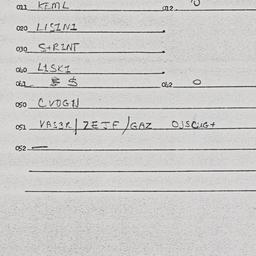 011 KEML 012. 0
020 LISINI
030 S+RINT
040 LISKI
041 $ $ 042 0
050 CVOGN
051 VAS3R/ZEJF/GAZ
052 —